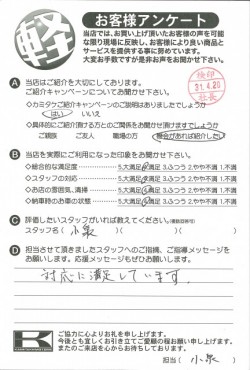 軽
お客様アンケート
当店では、お買い上げ頂いたお客様の声を可能
な限り現場に反映し、お客様により良い商品と
サービスを提供する事に努めています。
大変お手数ですが是非お声をお聞かせ下さい。
検印
31.4.20
社長
A 当店はご紹介を大切にしております。
ご紹介キャンペーンについてお聞かせ下さい。
・カミタケご紹介キャンペーンのご説明はありましたでしょうか
はい いいえ
・具体的にご紹介頂ける方とのご関係をお聞かせ頂けますでしょうか
ご親族 ご友人 職場の方 機会があれば紹介したい
B 当店を実際にご利用になった印象をお聞かせ下さい。
・総合的な満足度 5.大満足 4.満足 3.ふつう 2.やや不満 1.不満
・スタッフの対応 5.大満足 4.満足 3.ふつう 2.やや不満 1.不満
・お店の雰囲気、清掃 5.大満足 4.満足 3.ふつう 2.やや不満 1.不満
・納車時のお車の状態 5.大満足 4.満足 3.ふつう 2.やや不満 1.不満
C 評価したいスタッフがいれば教えてください。(複数回答可)
スタッフ名( 小泉 )( )
D 担当させて頂きましたスタッフへのご指摘、ご指導メッセージを
お願いします。応援メッセージもぜひお願いします。
対応に満足しています。
ご協力に心よりお礼を申し上げます。
今後とも宜しくお引き立てご愛顧の程お願い申し上げます。
またのご来店を心からお待ちしております。
担当( 小泉 )